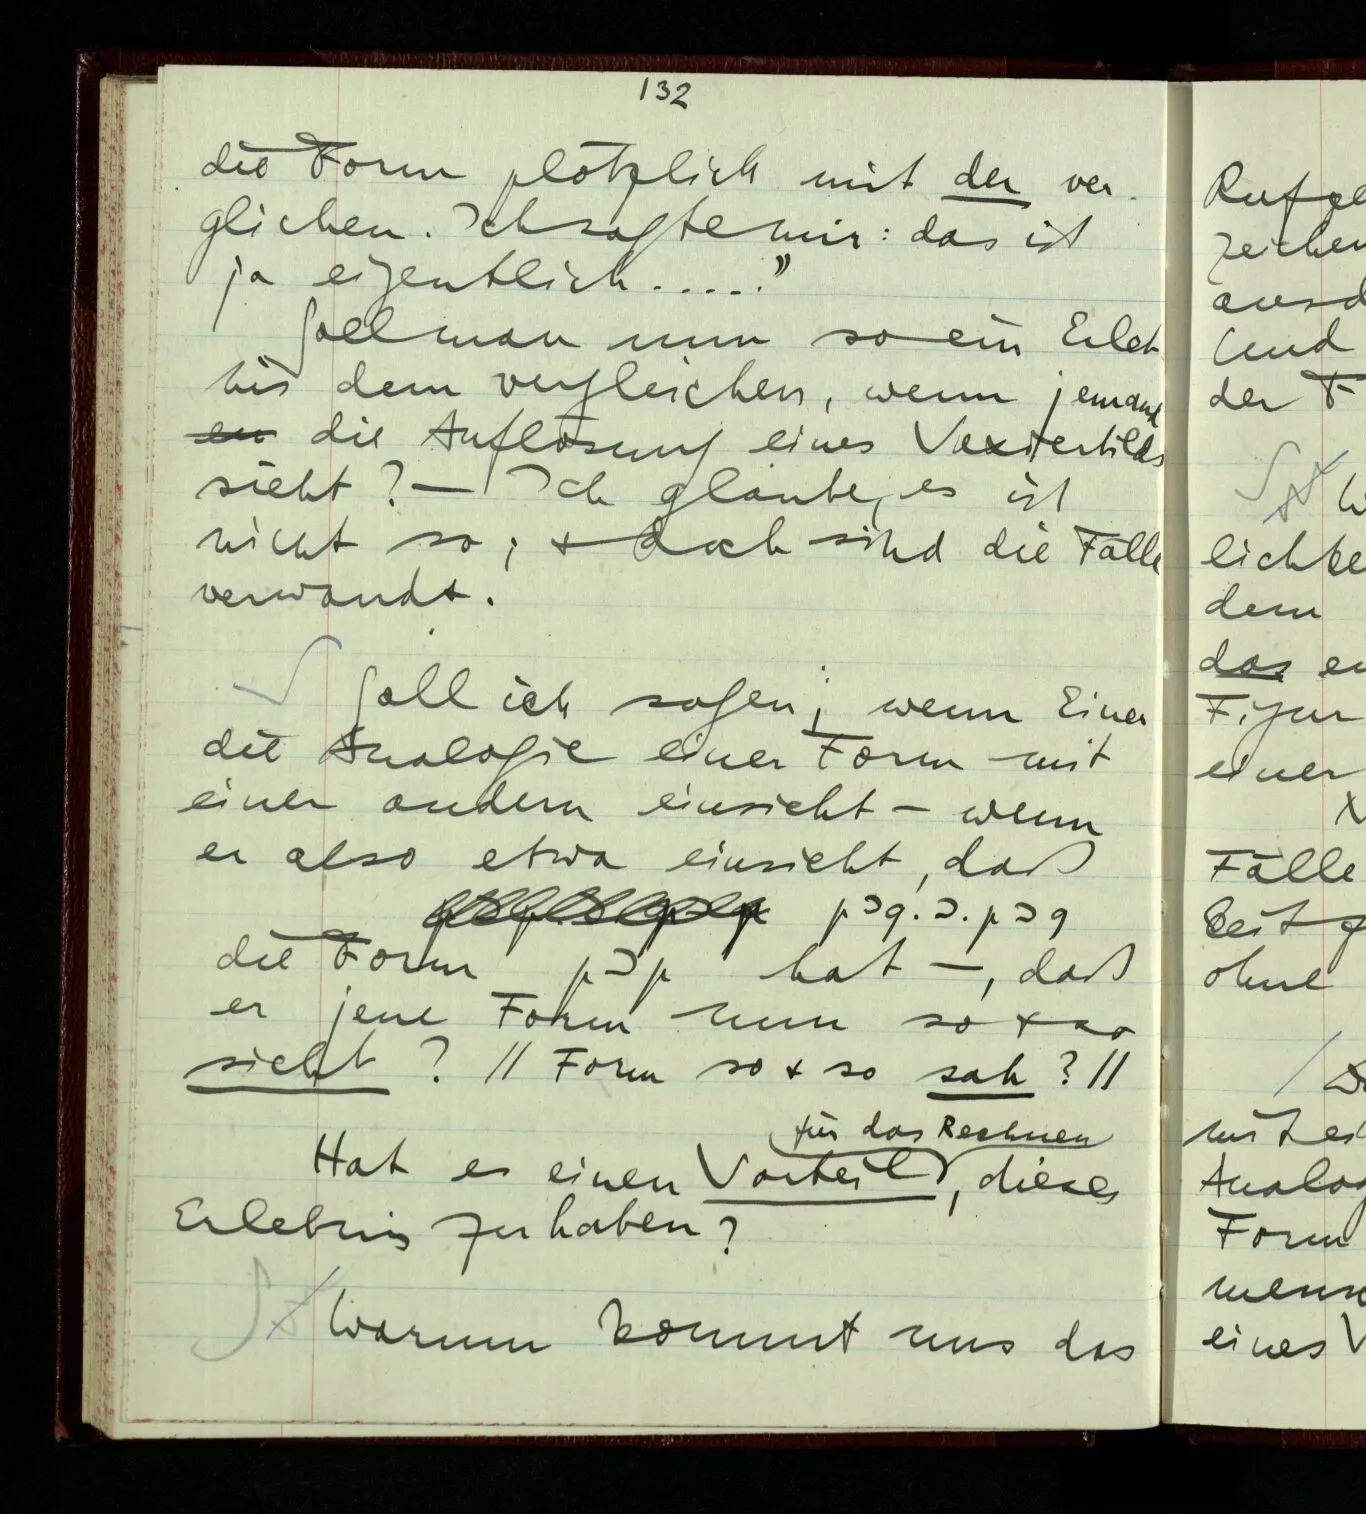 132
die Form plötzlich mit der ver-
glichen. Ich sagte mir: das ist
ja eigentlich.....”
Soll man nun so ein Erleb
nis dem vergleichen, wenn jemand
en die Auflösung eines Vexierbilds
sieht? — Ich glaube, es ist
nicht so; + doch sind die Fälle
verwandt.
Soll ich sagen; wenn Einer
die Analogie einer Form mit
einer andern einsieht – wenn
er also etwa einsieht, daß
p⊃q.⊃.p⊃q
die Form p⊃p hat —, daß
er jene Form nun so + so
sieht? // Form so + so sah? //
für das Rechnen
Hat es einen Vorteil, dieses
Erlebnis zu haben?
Warum kommt uns das
zeichen
und
der F
dem
das
Figur
einer
Fälle
ohne
Analog
Form
eines V